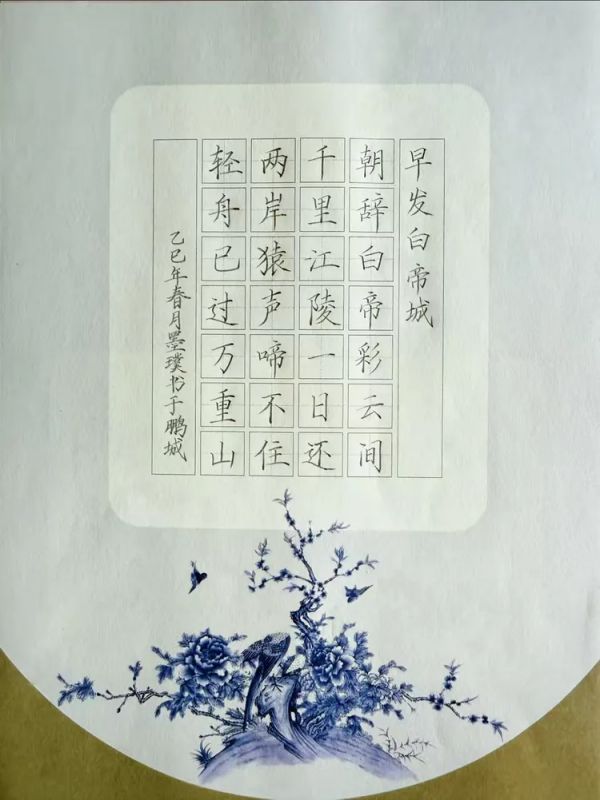 早发白帝城
朝辞白帝彩云间
千里江陵一日还
两岸猿声啼不住
轻舟已过万重山
乙巳年春月墨璞书于鹏城